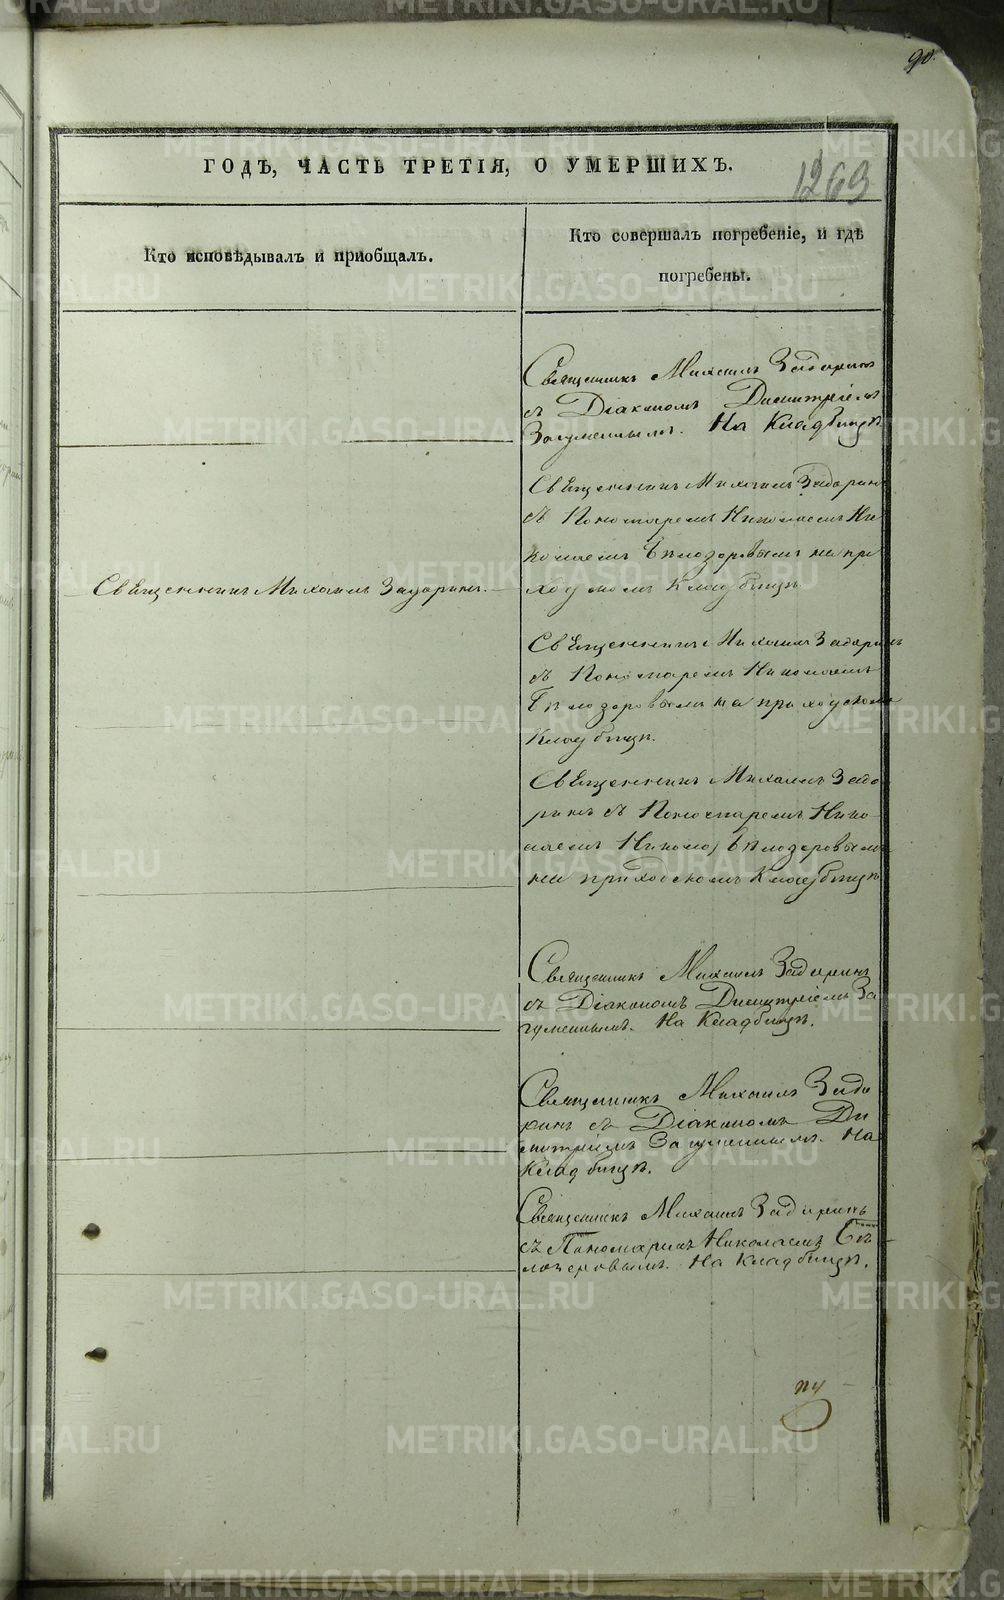 90.
ГОДЪ, ЧАСТЬ ТРЕТІЯ, О УМЕРШИХЪ.
1263
Кто исповѣдывалъ и приобщалъ.
Кто совершалъ погребеніе, и гдѣ
погребены.
Священникъ Михаилъ Задоринъ
съ Діакономъ Димитріемъ
Загуменнымъ. На Кладбищѣ
Священникъ Михаилъ Задоринъ
съ Пономаремъ Николаемъ Ни
колаемъ Бѣлозеровымъ на при
ходскомъ Кладбищѣ
Священникъ Михаилъ Задоринъ.
Священникъ Михаилъ Задоринъ
съ Пономаремъ Николаемъ
Бѣлозеровымъ на приходскомъ
Кладбищѣ.
Священникъ Михаилъ Задо
ринъ съ Пономаремъ Нико
лаемъ Бѣлозеровымъ
на приходскомъ Кладбищѣ
Священникъ Михаилъ Задоринъ
съ Діакономъ Димитріемъ За
гуменнымъ. На Кладбищѣ.
Священникъ Михаилъ Задо
ринъ съ Діакономъ Ди
митріемъ Загуменнымъ. На
Кладбищѣ.
Священникъ Михаилъ Задоринъ
съ Пономаремъ Николаемъ Бѣ
лозеровымъ. На Кладбищѣ.
METRIKI.GASO-URAL.RU